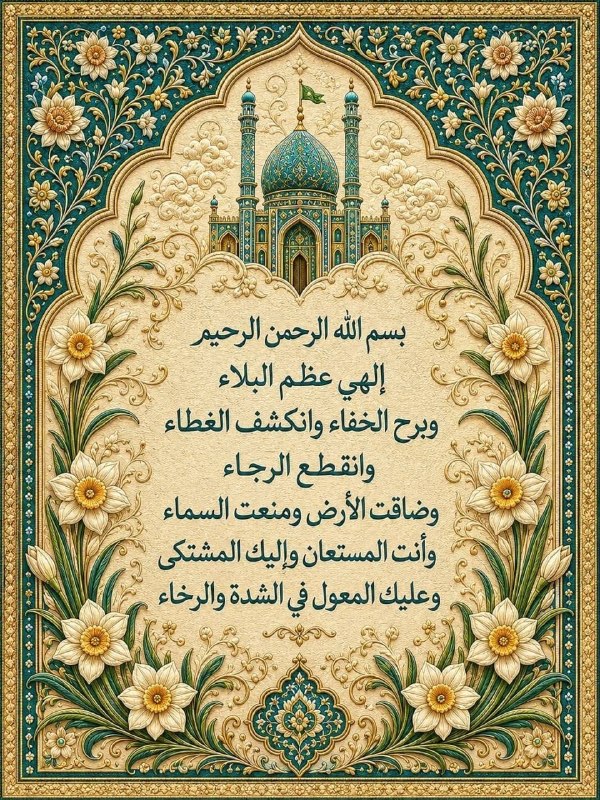 بسم الله الرحمن الرحيم
إلهي عظم البلاء
وبرح الخفاء وانكشف الغطاء
وانقطع الرجاء
وضاقت الأرض ومنعت السماء
وأنت المستعان وإليك المشتكى
وعليك المعول في الشدة والرخاء